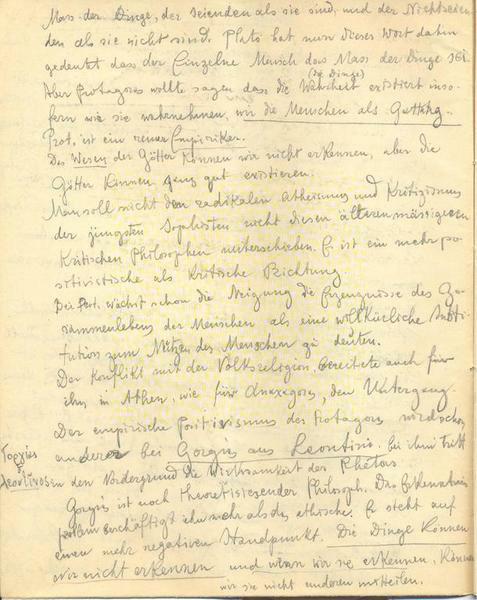 Mass der Dinge, der seienden als sie sind, und der Nichtseien
den als sie nicht sind. Plato hat nun dieses Wort dahin
gedeutet dass der Einzelne Mensch das Mass der Dinge sei.
(die Dinge)
Aber Protagoras wollte sagen dass die Wahrheit existiert inso
fern wie sie wahrnehmen, wir die Menschen als Gattung.
Prot. ist ein reiner Empiriker.
Das Wesen der Götter können wir nicht erkennen, aber die
Götter können ganz gut existieren.
Man soll nicht den radikalen Atheismus und Kritizismus
der jüngsten Sophisten nicht diesen älteren mässigeren
Kritischen Philosophen unterschieben. Er ist ein mehr po
sitivistische als Kritische Richtung
Bei Prot. wächst schon die Neigung die Erzeugnisse des Ge
sammenlebens der Menschen als eine willkürliche Insti
tution zum Nützen des Menschen zu deuten.
Der Konflikt mit der Volksreligion bereitete auch für
ihn in Athen, wie für Anaxagoras, den Untergang.
Der empirische Positivismus des Protagoras wird schon
anderes bei Gorgias aus Leontinis. Bei ihm tritt
Γοργίας
ὁ
Λεοντῖνος
in den Vordergrund die Wirksamkeit des Rhetors
Gorgias ist noch theoretisierender Philosoph. Das Erkenntnis
problem beschäftigt ihn mehr als das ethische. Er steht auf
einen mehr negativen Standpunkt. Die Dinge können
wir nicht erkennen und wenn wir sie erkennen, können
wir sie nicht anderen mitteilen.